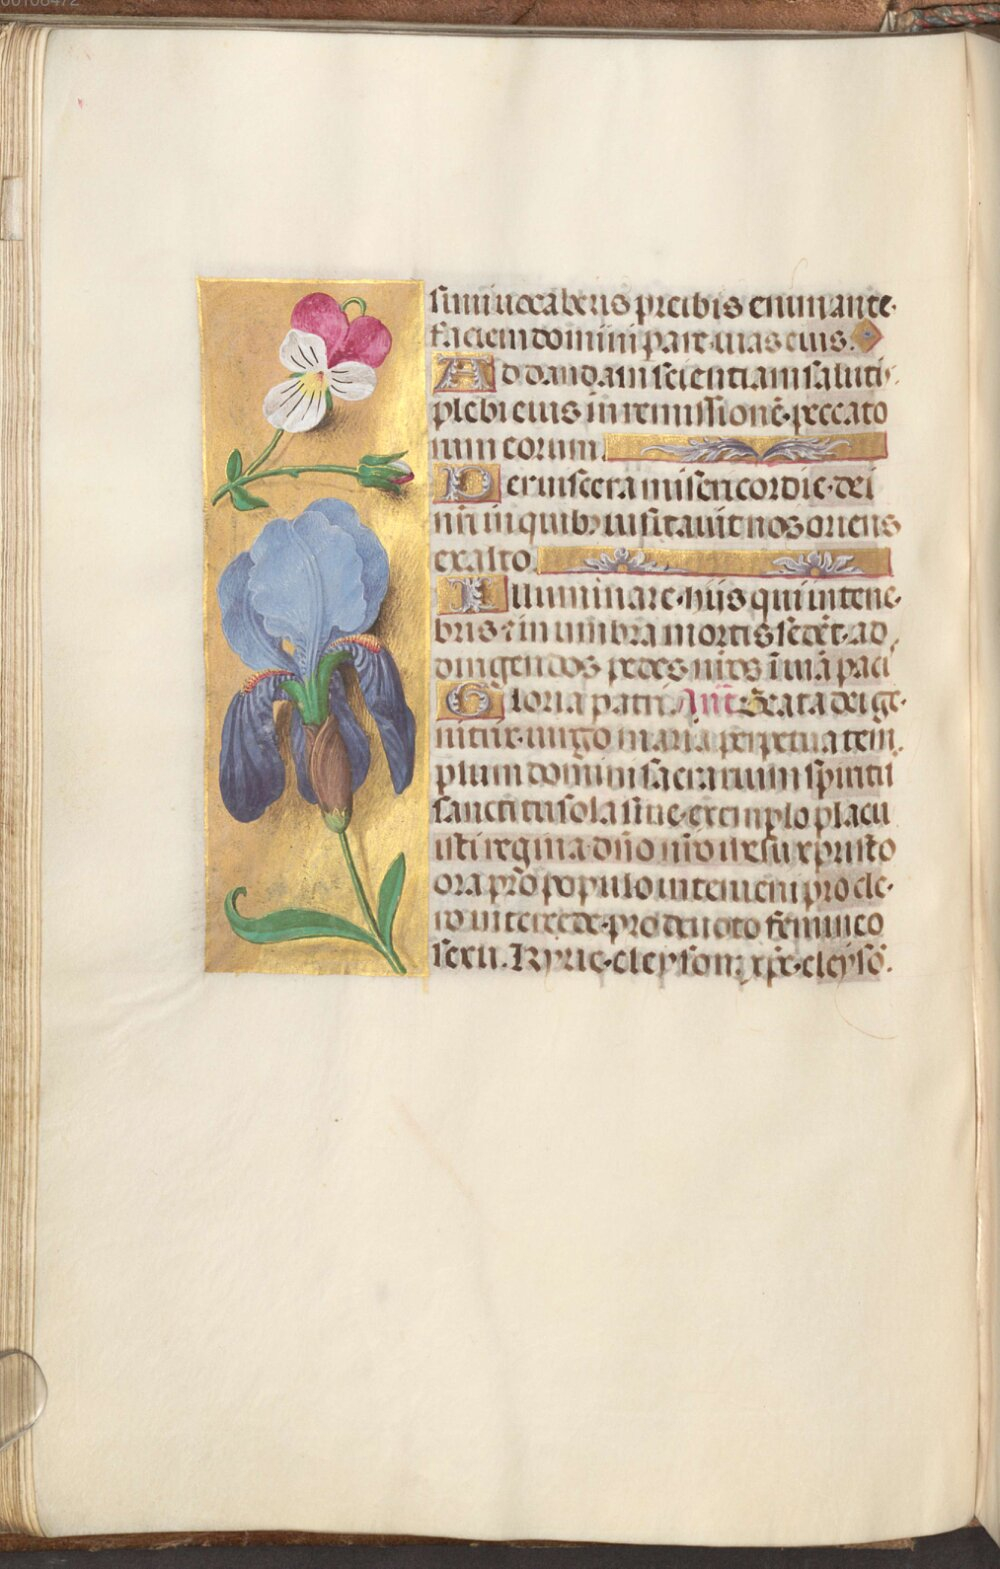 00108472
simi vocaberis preibis enim ante
faciem domini parare vias eius.
Ad dandam scientiam saluti
plebi eius in remissionē peccato
rum eorum.
Per viscera misericordie dei
nr̄i in quib; visitavit nos oriens
ex alto.
Illuminare hiis qui in tene
bris ⁊ in umbra mortis sedēt ad
dirigendos pedes nr̄os ī viā paci
Gloria patri. Añt. Beata dei ge
nitrix virgo maria perpetua tem
plum domini sacrarium spiritu
sancti tu sola sine exemplo placu
isti regina dn̄o nr̄o ihesu xpristo
ora pro populo interveni pro cle
ro intercede pro devoto femineo
sexu. Kyrie eleyson. xp̄e eleysō.